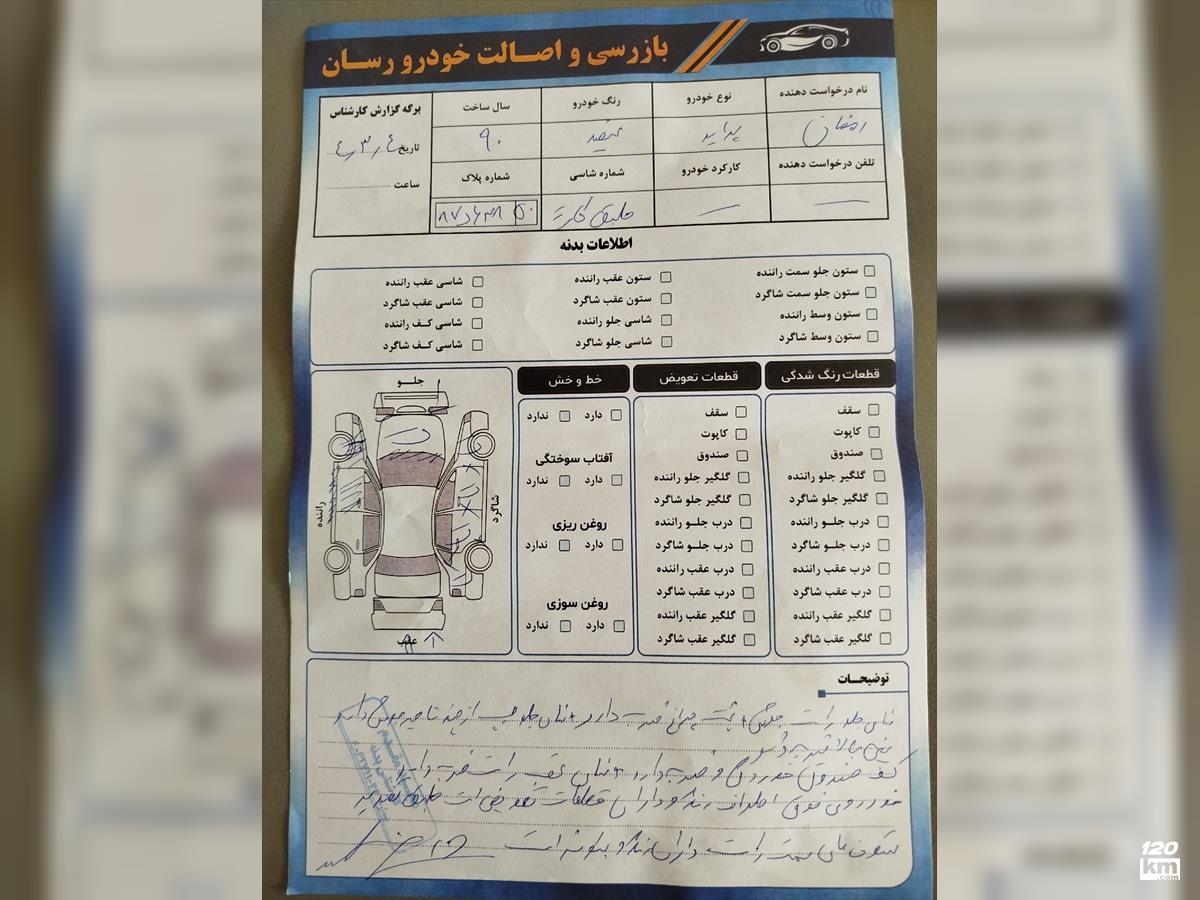 بازرسی و اصالت خودرو رسان
نام درخواست دهنده
نوع خودرو
رنگ خودرو
سال ساخت
برگه گزارش کارشناس
رمضان
پراید
سفید
۹۰
تاریخ ۴،۳،۴
تلفن درخواست دهنده
کارکرد خودرو
شماره شاسی
شماره پلاک
ساعت
طبق کارت
اطلاعات بدنه
ستون جلو سمت راننده
ستون عقب راننده
شاسی عقب راننده
ستون جلو سمت شاگرد
ستون عقب شاگرد
شاسی عقب شاگرد
ستون وسط راننده
شاسی جلو راننده
شاسی کف راننده
ستون وسط شاگرد
شاسی جلو شاگرد
شاسی کف شاگرد
قطعات رنگ شدگی
سقف
کاپوت
صندوق
گلگیر جلو راننده
گلگیر جلو شاگرد
درب جلو راننده
درب جلو شاگرد
درب عقب راننده
درب عقب شاگرد
گلگیر عقب راننده
گلگیر عقب شاگرد
قطعات تعویض
سقف
کاپوت
صندوق
گلگیر جلو راننده
گلگیر جلو شاگرد
درب جلو راننده
درب جلو شاگرد
درب عقب راننده
درب عقب شاگرد
گلگیر عقب راننده
گلگیر عقب شاگرد
خط و خش
دارد ندارد
آفتاب سوختگی
دارد ندارد
روغن ریزی
دارد ندارد
روغن سوزی
دارد ندارد
جلو
راننده
شاگرد
عقب
توضیحات
جلو راست پشت چراغ ضربه دارد جلو چپ از چند ناحیه جوش دارد
کف صندوق ضربه دارد عقب راست ضربه دارد
خودروی فوق اطراف رنگ و دارای قطعات تعویضی است
ستون های سمت راست دارای رنگ و است
120
km
.com